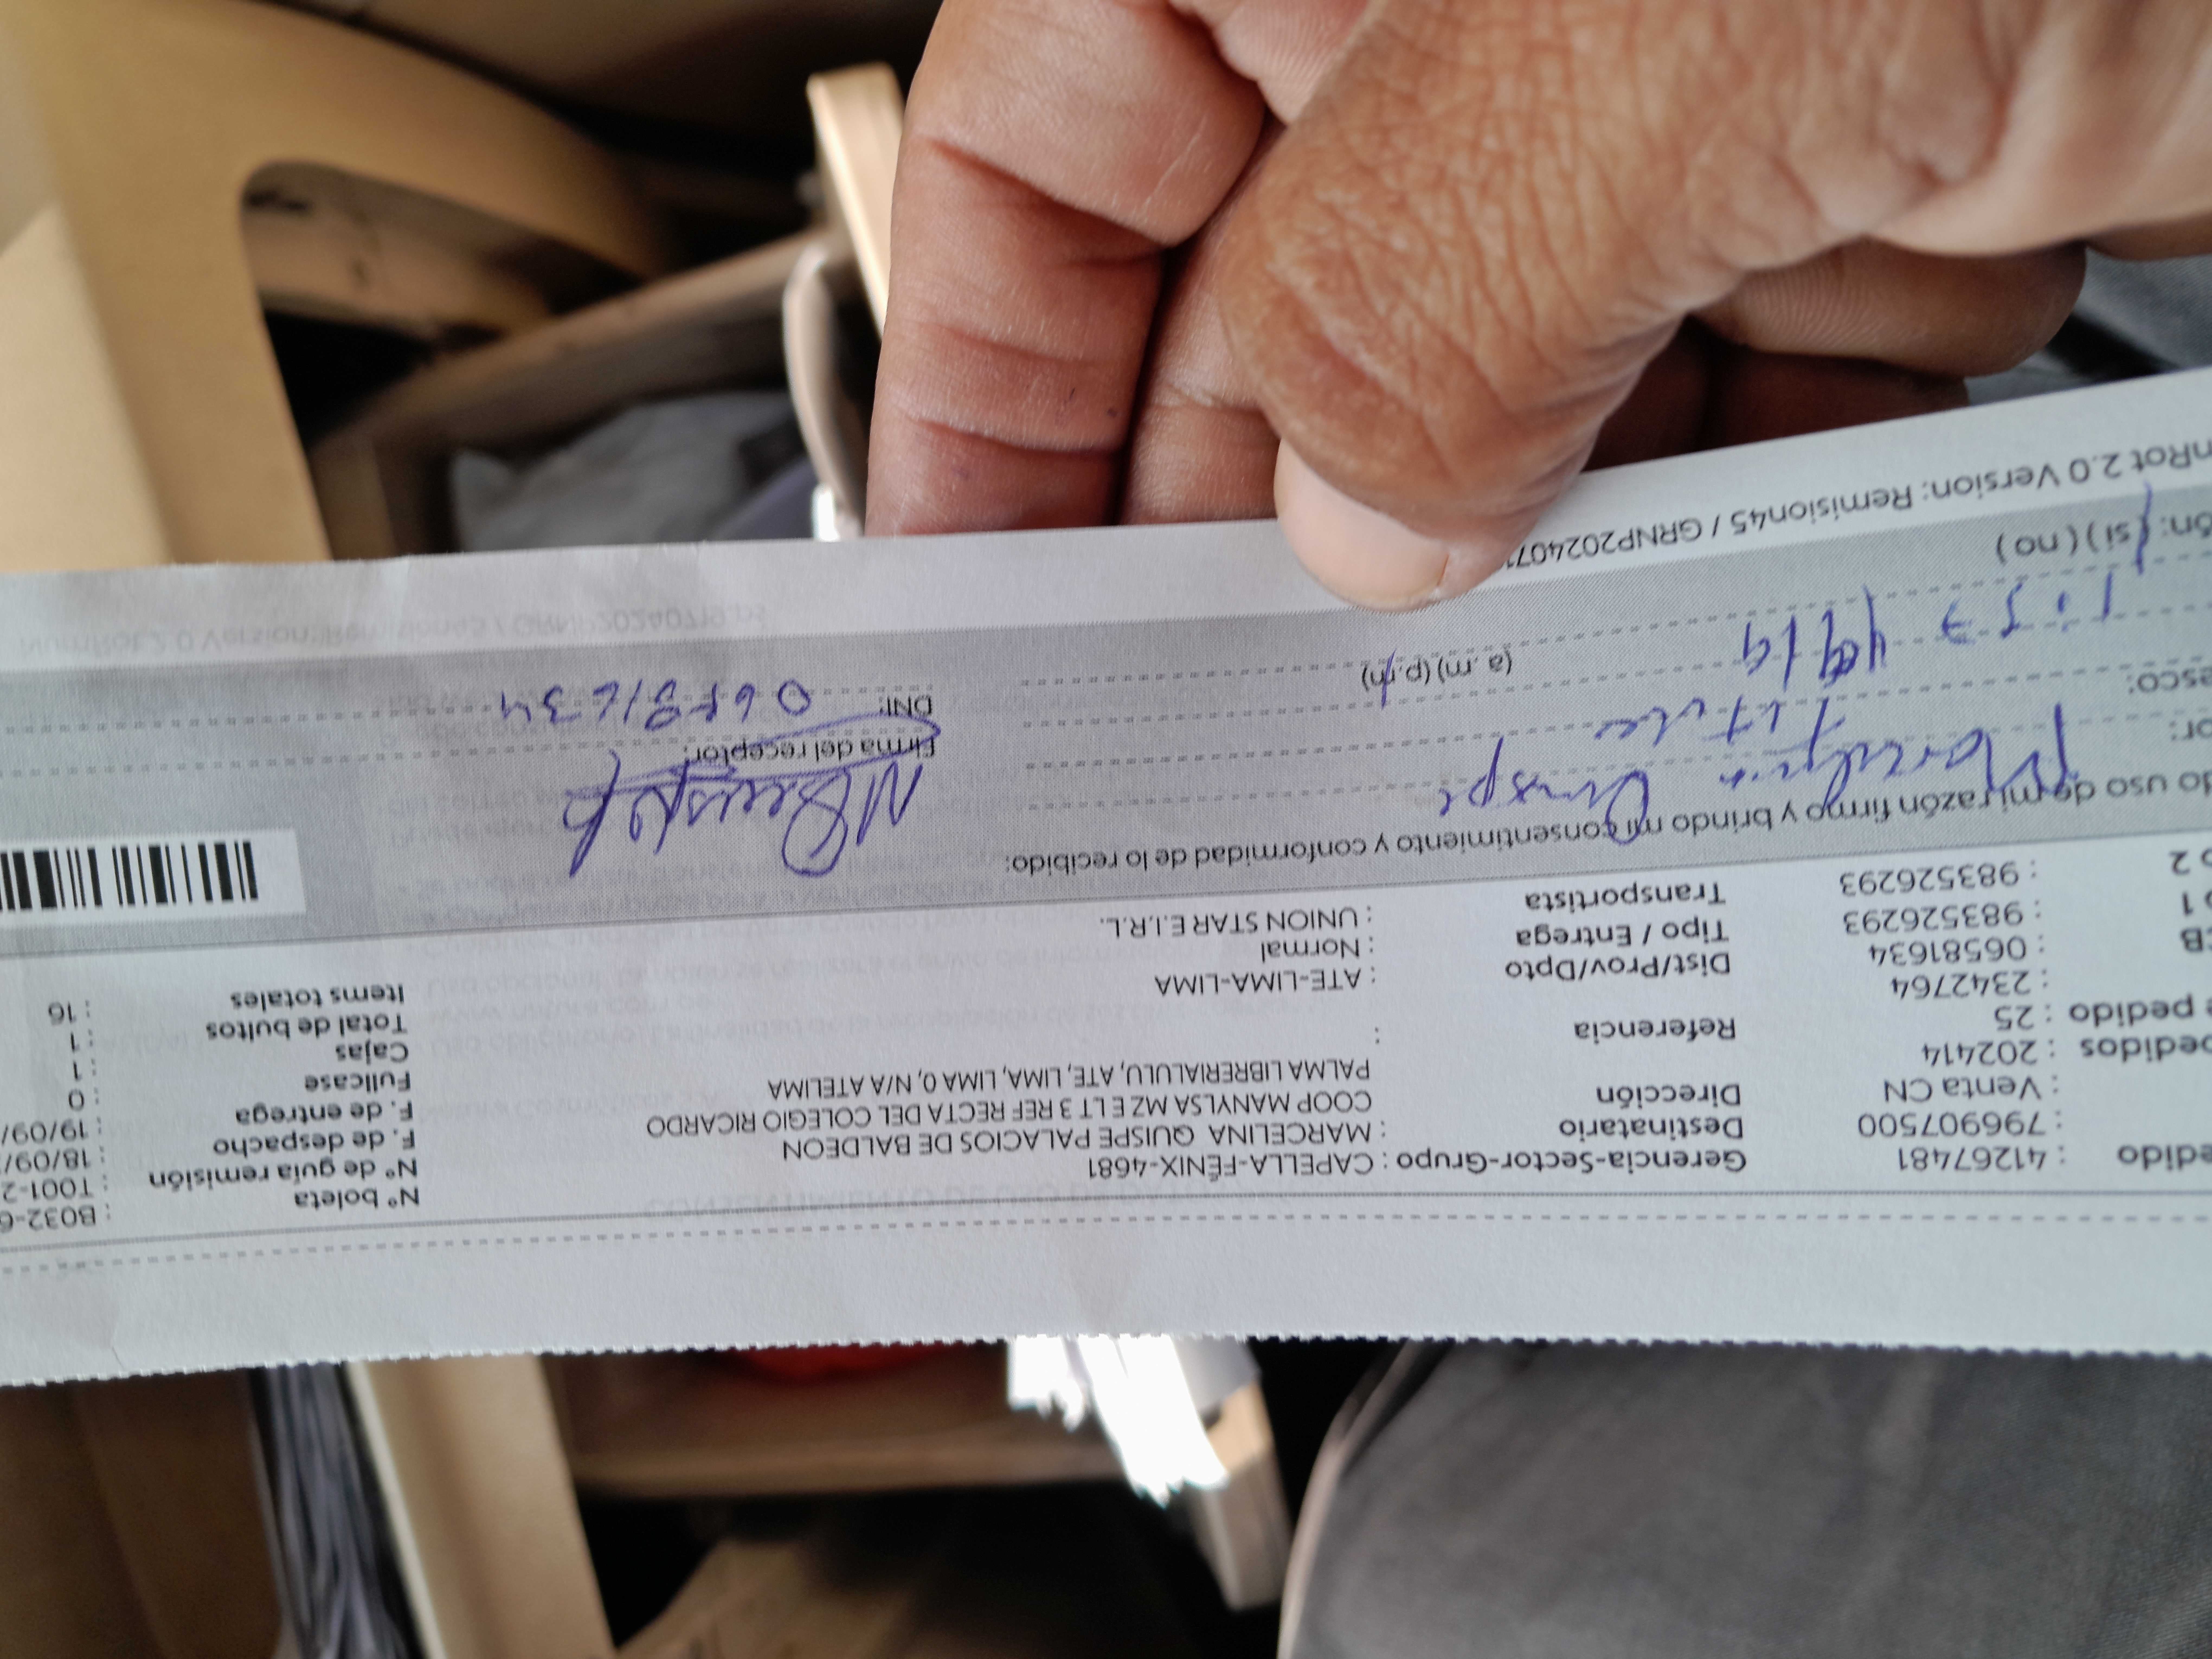 edido : 41267481
: 796907500
: Venta CN
pedidos : 202414
e pedido : 25
: 2342764
CB : 06581634
o 1 : 983526293
o 2 : 983526293
Gerencia-Sector-Grupo : CAPELLA-FÉNIX-4681
Destinatario : MARCELINA QUISPE PALACIOS DE BALDEON
Dirección COOP MANYLSA MZ E LT 3 REF RECTA DEL COLEGIO RICARDO
PALMA LIBRERIALULU, ATE, LIMA, LIMA 0, N/A ATELIMA
Referencia :
Dist/Prov/Dpto : ATE-LIMA-LIMA
Tipo / Entrega : Normal
Transportista : UNION STAR E.I.R.L.
Nº boleta : B032-6
Nº de guía remisión : T001-2
F. de despacho : 18/09/
F. de entrega : 19/09/
Fullcase : 0
Cajas : 1
Total de bultos : 1
Items totales : 16
do uso de mi razón firmo y brindo mi consentimiento y conformidad de lo recibido:
or: Marcelina Quispe
esco: Titular
(a.m) (p.m)
ón: (si) (no)
Firma del receptor:
DNI:
nRot 2.0 Version: Remision45 / GRNP202407